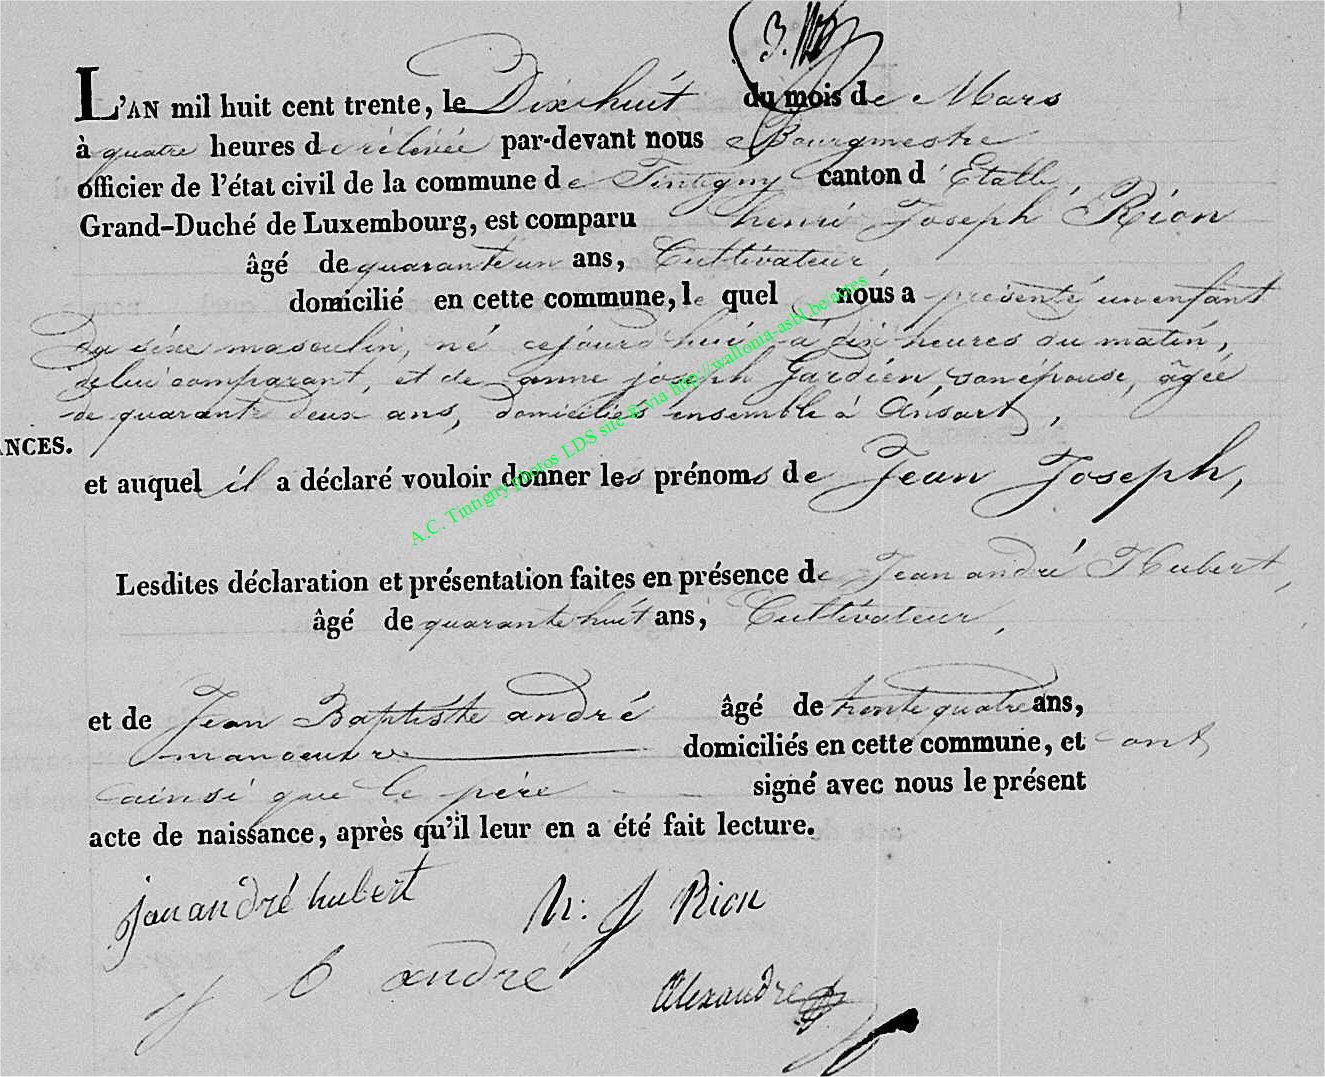 L'AN mil huit cent trente, le Dix huit du mois de Mars
à quatre heures de rélévée par-devant nous Bourgmestre
officier de l'état civil de la commune de Tintigny canton d'Etalle,
Grand-Duché de Luxembourg, est comparu henri Joseph Rion
âgé de quarante un ans, Cultivateur,
domicilié en cette commune, le quel nous a présenté un enfant
du sèxe masculin, né cejourd'hui à dix heures du matin,
de lui comparant, et de anne joseph Gardien, son épouse, âgée
de quarante deux ans, domiciliés ensemble à Ansart,
ANCES.
et auquel il a déclaré vouloir donner les prénoms de Jean Joseph,
Lesdites déclaration et présentation faites en présence de Jean andré Hubert,
âgé de quarante huit ans, Cultivateur,
et de Jean Baptiste andré âgé de trente quatre ans,
manoeuvre domiciliés en cette commune, et ont
ainsi que le père signé avec nous le présent
acte de naissance, après qu'il leur en a été fait lecture.
jan andré hubert h: J Rion
J B andré Alexandre
A.C. Tintigny photos LDS site © via http://wallonia-asbl.be/actes